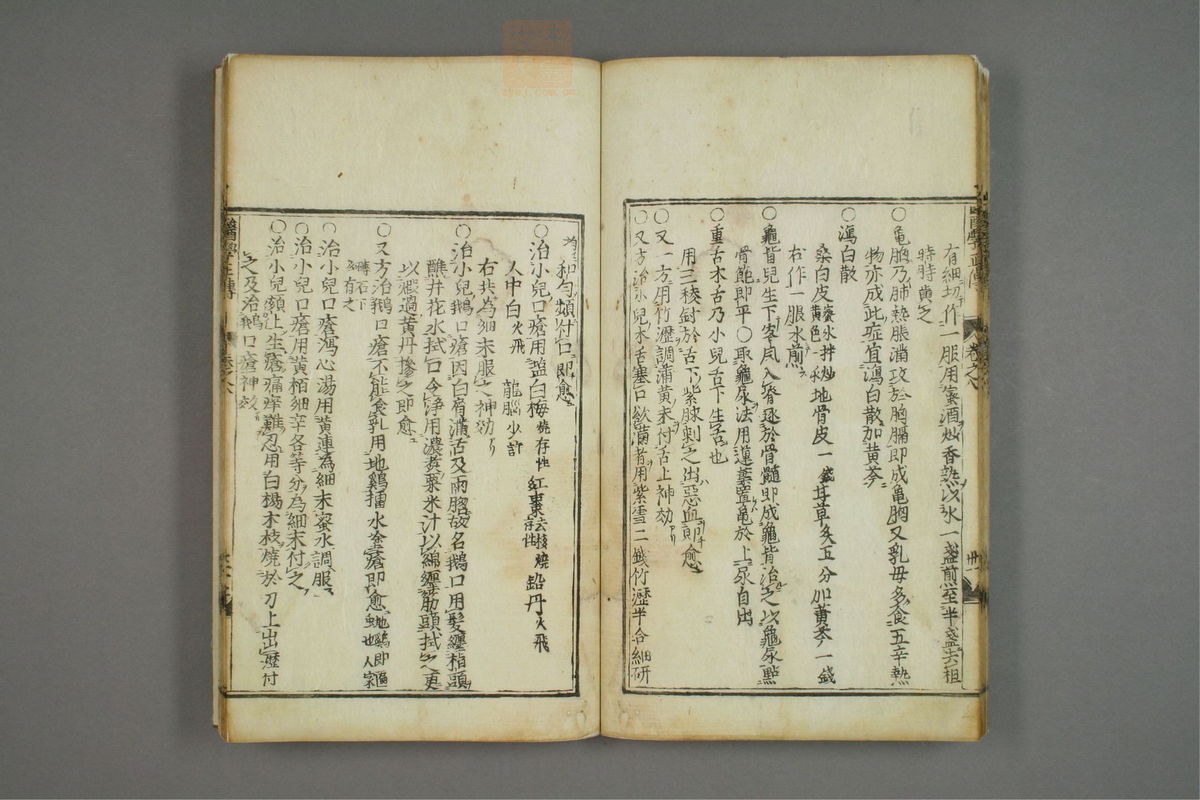 有細切作一服用蜜酒炒香熟以水一盞煎至半盞去柤
時時煎之
○龜胸乃肺熱脹滿攻於胸膈即成龜胸又乳母多食五辛熱
物亦成此症宜瀉白散加黃芩
○瀉白散
桑白皮 蜜水拌炒黃色一錢 地骨皮一錢甘草炙五分加黃芩一錢
右作一服水煎
○龜背兒生下客風入脊逐於骨髓即成龜背治之以龜尿點
骨節即平○取龜尿法用蓮葉置龜於上尿自出
○重舌木舌乃小兒舌下生舌也
用三稜針於舌下紫脉刺之出惡血即愈
○又一方用竹瀝調蒲黃末付舌上神効
○又方治小兒木舌塞口欲滿者用紫雪二錢竹瀝半合細研
和勻頻付口即愈
○治小兒口瘡用盬白梅 燒存性 紅棗 去核燒存性 鉛丹火飛
人中白火飛 龍腦少許
右共為細末服之神効
○治小兒鵝口瘡因白屑滿舌及兩腮故名鵝口用髮纏指頭
蘸井花水拭口令淨用濃煑粟米汁以綿纏筯頭拭之更
以飛過黃丹摻之即愈
○又方治鵝口瘡不能食乳用地鷄擂水塗瘡即愈 地鷄即䘆虫也人家
磚石下多有之
○治小兒口瘡瀉心湯用黃連為細末蜜水調服
○治小兒口瘡用黃栢細辛各等分為細末付之
○治小兒頰上生瘡痛痒難忍用白楊木枝燒於刀上出瀝付
之及治鵝口瘡神效
醫學正傳
卷之八